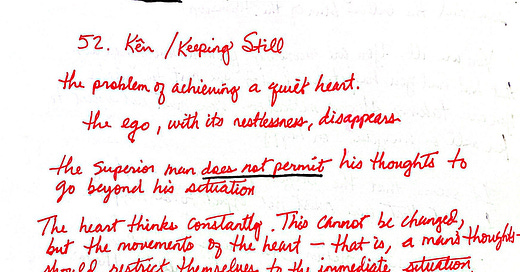 52. Kên / Keeping Still
the problem of achieving a quiet heart.
the ego, with its restlessness, disappears
the Superior man does not permit his thoughts to
go beyond his situation
The heart thinks constantly. This cannot be changed,
but the movements of the heart — that is, a man's thoughts —
should restrict themselves to the immediate situation